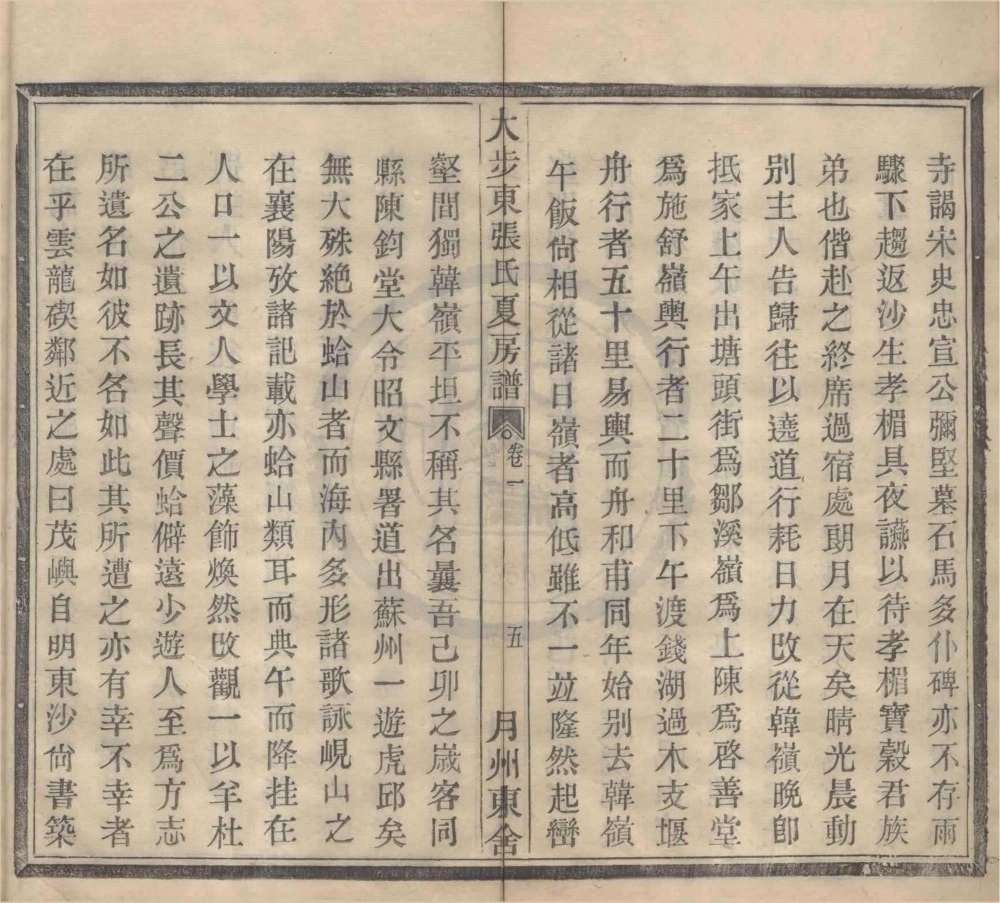 寺謁宋史忠宣公彌堅墓石馬多仆碑亦不存雨
驟下趨返沙生孝楣具夜讌以待孝楣寶穀君族
弟也偕赴之終席過宿處朗月在天矣晴光晨動
別主人告歸往以遶道行耗日力改從韓嶺晚卽
抵家上午出塘頭街爲鄒溪嶺爲上陳爲啓善堂
爲施舒嶺輿行者二十里下午渡錢湖過木支堰
舟行者五十里易輿而舟和甫同年始別去韓嶺
午飯尙相從諸日嶺者高低雖不一竝隆然起巒
大步東張氏夏房譜 卷一 五 月州東舍
壑間獨韓嶺平坦不稱其名曩吾己卯之歲客同
縣陳鈞堂大令昭文縣署道出蘇州一遊虎邱矣
無大殊絶於蛤山者而海內多形諸歌詠峴山之
在襄陽攷諸記載亦蛤山類耳而典午而降挂在
人口一以文人學士之藻飾煥然改觀一以羊杜
二公之遺跡長其聲價蛤僻遠少遊人至爲方志
所遺名如彼不名如此其所遭之亦有幸不幸者
在乎雲龍碶鄰近之處曰茂嶼自明東沙尙書築